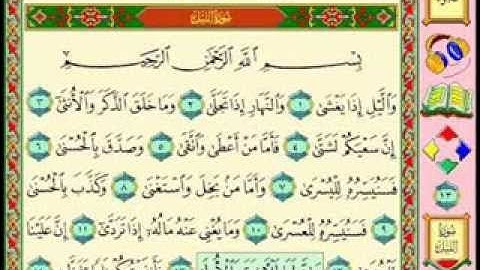 سُورَةُ اللَّيْلِ
بِسْمِ اللَّهِ الرَّحْمَٰنِ الرَّحِيمِ
وَالَّيْلِ إِذَا يَغْشَىٰ ١ وَالنَّهَارِ إِذَا تَجَلَّىٰ ٢ وَمَا خَلَقَ الذَّكَرَ وَالْأُنثَىٰ ٣
إِنَّ سَعْيَكُمْ لَشَتَّىٰ ٤ فَأَمَّا مَنْ أَعْطَىٰ وَاتَّقَىٰ ٥ وَصَدَّقَ بِالْحُسْنَىٰ ٦
فَسَنُيَسِّرُهُ لِلْيُسْرَىٰ ٧ وَأَمَّا مَن بَخِلَ وَاسْتَغْنَىٰ ٨ وَكَذَّبَ بِالْحُسْنَىٰ
٩ فَسَنُيَسِّرُهُ لِلْعُسْرَىٰ ١٠ وَمَا يُغْنِي عَنْهُ مَالُهُ إِذَا تَرَدَّىٰ ١١ إِنَّ عَلَيْنَا
١٣
سورة
الليل